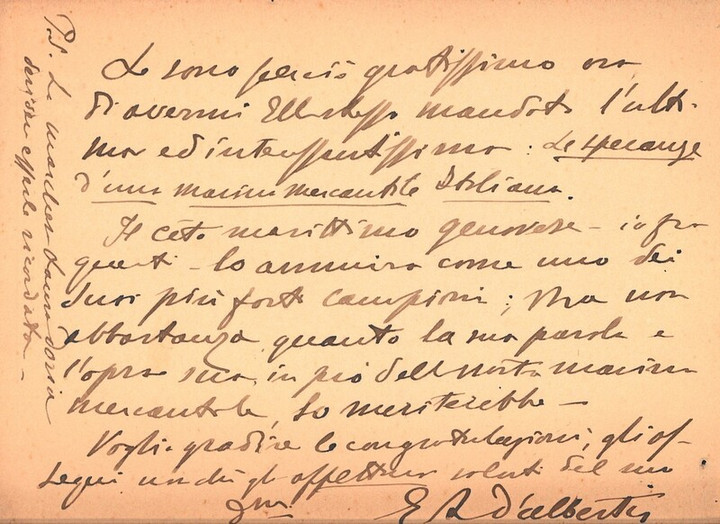 Le sono perciò gratissimo ora
di avermi Ella stessa mandato l'ulti-
ma ed interessantissima: Le speranze
d'una marina mercantile Italiana.
Il ceto marittimo genovese – io fra
questi – lo ammira come uno dei
suoi più forti campioni; ma non
abbastanza quanto la sua parola e
l'opra sua in prò dell nostra marina
mercantile, lo meriterebbe –
Voglia gradire le congratulazioni, gli os-
sequi nonchè gli affettuosi saluti del suo
E A d'Albertis
P.S. La marchesa Laura Doria
desidera essere ricordata –